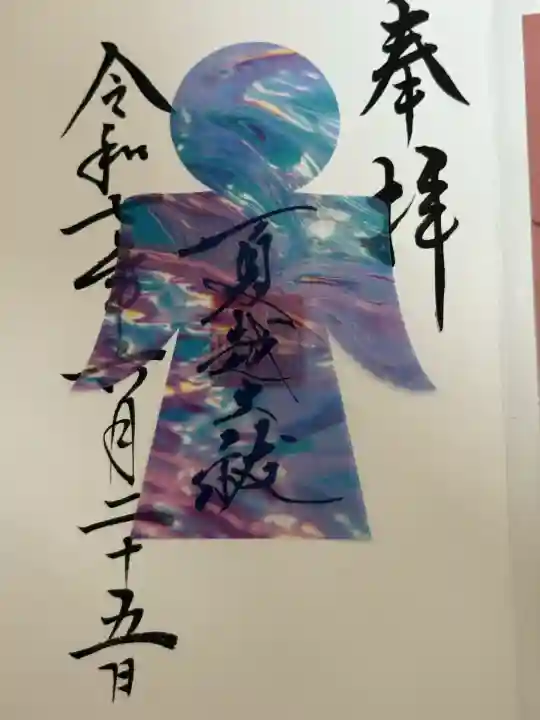 奉拝
夏越大祓
令和七年六月二十五日